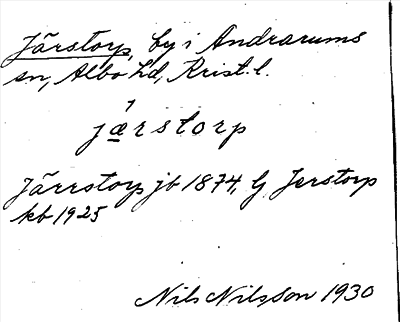 Järstorp, by i Andrarums
sn, Albo hd, Krist. l.
jærstorp
Järrstorp jb 1874, Jerstorp
kb 1925
Nils Nilsson 1930